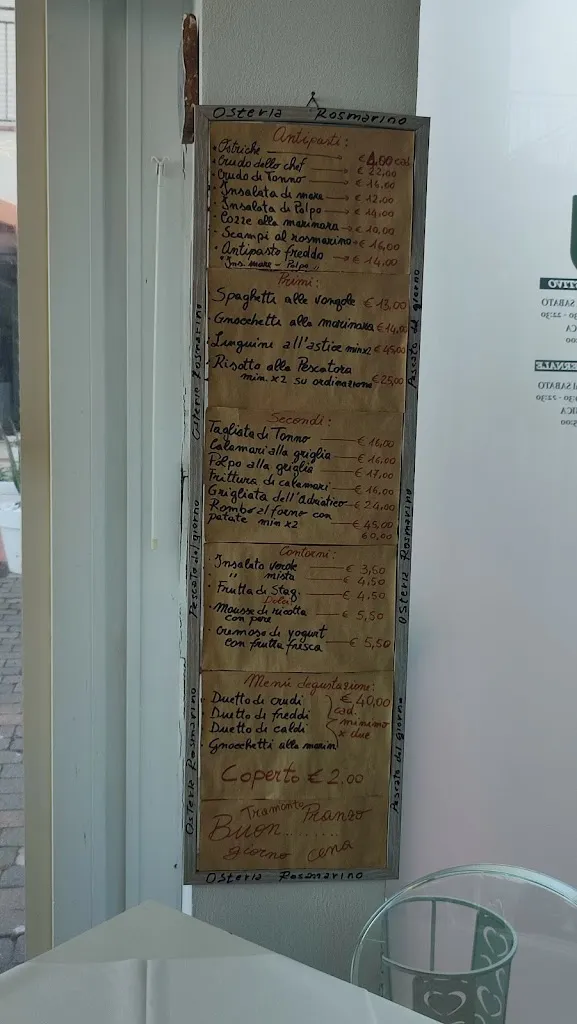 Osteria Rosmarino
Antipasti:
· Ostriche € 4,00 cad.
· Crudo dello chef € 22,00
· Crudo di Tonno € 14,00
· Insalata di mare € 12,00
· Insalata di Polpo € 14,00
· Cozze alla marinara € 10,00
· Scampi al rosmarino € 16,00
· Antipasto freddo € 14,00
"Ins. mare - Polpo"
Primi:
Spaghetti alle vongole € 13,00
· Gnocchetti alla marinara € 14,00
· Linguine all'astice min x2 € 45,00
· Risotto alla Pescatora
min. x2 su ordinazione € 25,00
Secondi:
Tagliata di Tonno € 16,00
Calamari alla griglia € 16,00
Polpo alla griglia € 17,00
Frittura di calamari € 16,00
Grigliata dell'Adriatico € 24,00
Rombo al forno con
patate min x2 € 45,00
60,00
Contorni:
· Insalata verde € 3,50
" mista € 4,50
· Frutta di Stag. € 4,50
Dolci
· Mousse di ricotta
con pere € 5,50
· Cremoso di yogurt
con frutta fresca € 5,50
Menù degustazione:
· Duetto di crudi € 40,00
· Duetto di freddi cad.
· Duetto di caldi minimo
· Gnocchetti alla marin x due
Coperto € 2.00
Tramonto
Buon........ Pranzo
giorno cena
Osteria Rosmarino
Osteria Rosmarino
Pescato del giorno
Osteria Rosmarino
Pescato del giorno
Osteria Rosmarino
Pescato del giorno